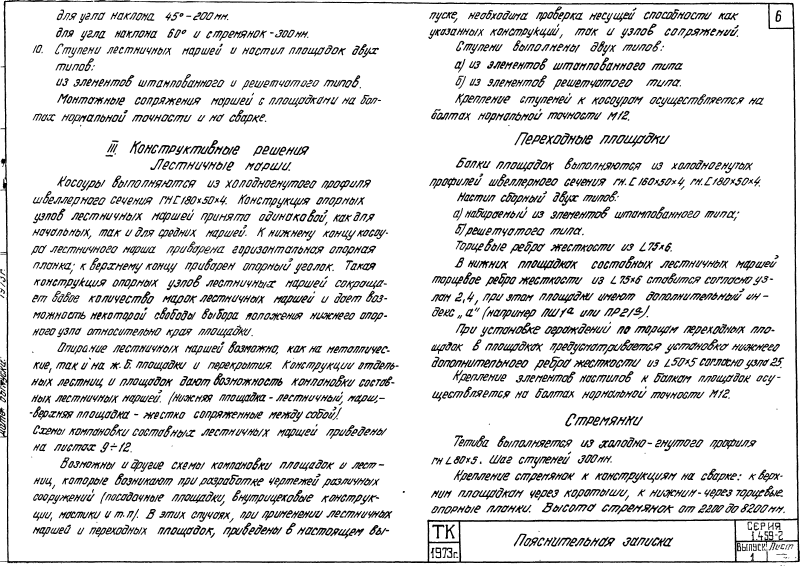 для угла наклона 45°-200мм.
для угла наклона 60° и стремянок-300мм.
10. Ступени лестничных маршей и настил площадок двух
типов:
из элементов штампованного и решетчатого типов.
Монтажные сопряжения маршей с площадками на бол-
тах нормальной точности и на сварке.
III. Конструктивные решения
Лестничные марши.
Косоуры выполняются из холодногнутого профиля
швеллерного сечения гн.[180×50×4. Конструкция опорных
узлов лестничных маршей принята одинаковой, как для
начальных, так и для средних маршей. К нижнему концу косоу-
ра лестничного марша приварена горизонтальная опорная
планка; к верхнему концу приварен опорный уголок. Такая
конструкция опорных узлов лестничных маршей сокраща-
ет вдвое количество марок лестничных маршей и дает воз-
можность некоторой свободы выбора положения нижнего опор-
ного узла относительно края площадки.
Опирание лестничных маршей возможно, как на металличес-
кие, так и на ж.б. площадки и перекрытия. Конструкции отдель-
ных лестниц и площадок дают возможность компановки состав-
ных лестничных маршей. (Нижняя площадка-лестничный, марш,-
-верхняя площадка - жестко сопряженные между собой)!
Схемы компановки составных лестничных маршей приведены
на листах 9÷12.
Возможны и другие схемы компановки площадок и лест-
ниц, которые возникают при разработке чертежей различных
сооружений (посадочные площадки, внутрицеховые конструк-
ции, мостики и т.п). В этих случаях, при применении лестничных
маршей и переходных площадок, приведены в настоящем вы-
пуске, необходима проверка несущей способности как
указанных конструкций, так и узлов сопряжений.
Ступени выполнены двух типов:
а) из элементов штампованного типа
б) из элементов решетчатого типа.
Крепление ступеней к косоурам осуществляется на
болтах нормальной точности М12.
Переходные площадки
Балки площадок выполняются из холодногнутых
профилей швеллерного сечения гн.[160×50×4, гн.[180×50×4.
Настил сборный двух типов:
а) набираемый из элементов штампованного типа;
б) решетчатого типа.
Торцевые ребра жесткости из L75×6.
В нижних площадках составных лестничных маршей
торцевое ребро жесткости из L75×6 ставится согласно уз-
лам 2,4, при этом площадки имеют дополнительный ин-
декс „а" (например ПШ1а или ПР21а).
При установке ограждений по торцам переходных пло-
щадок в площадках предусматривается установка нижнего
дополнительного ребра жесткости из L50×5 согласно узла 25.
Крепление элементов настилов к балкам площадок осу-
ществляется на болтах нормальной точности М12.
Стремянки
Тетива выполняется из холодно-гнутого профиля
гн L80×5. Шаг ступеней 300мм.
Крепление стремянок к конструкциям на сварке: к верх-
ним площадкам через коротыши, к нижним-через торцевые
опорные планки. Высота стремянок от 2200 до 8200мм.
6
ТК
1973г.
Пояснительная записка
СЕРИЯ
1.459-2
Выпуск Лист
1